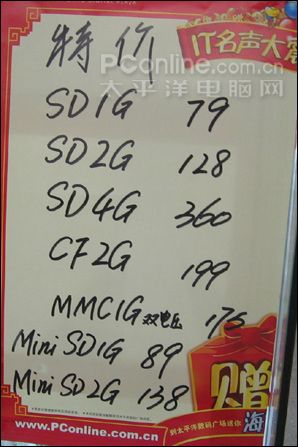 特价
IT名声大震
PConline.com.cn
太平洋电脑网
SD1G 79
SD2G 128
SD4G 360
CF2G 199
MMC1G 双电压 175
Mini SD1G 89
Mini SD2G 138
赠
到太平洋数码广场迷你
海
www.PConline.com.cn